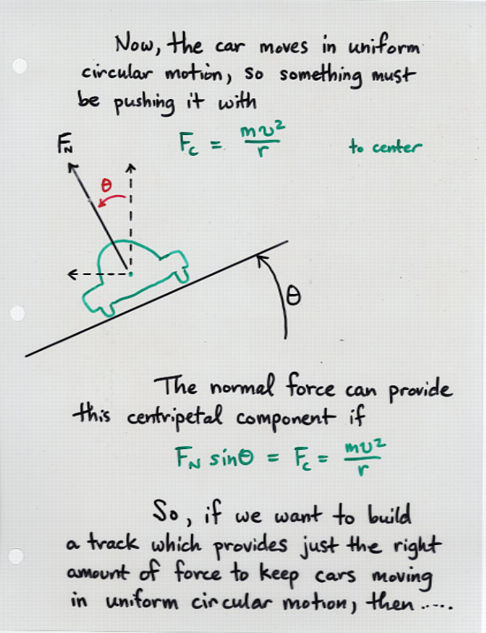 Now, the car moves in uniform
circular motion, so something must
be pushing it with
F_c = mv²/r to center
F_N
θ
θ
The normal force can provide
this centripetal component if
F_N sinθ = F_c = mv²/r
So, if we want to build
a track which provides just the right
amount of force to keep cars moving
in uniform circular motion, then .....